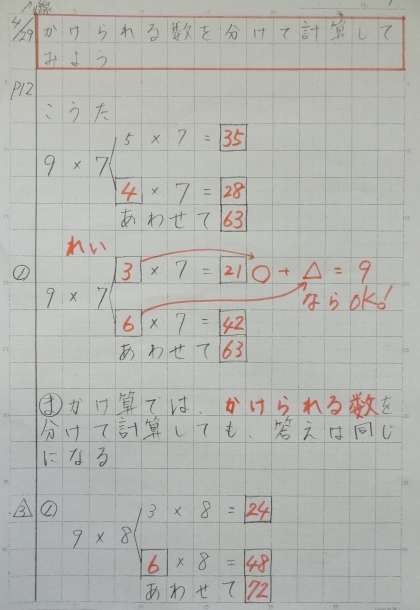 4/29 かけられる数を分けて計算して
みよう
P12
こうた
5 × 7 = 35
9 × 7
4 × 7 = 28
あわせて 63
れい
① 3 × 7 = 21 ○ + △ = 9
9 × 7 ならOK!
6 × 7 = 42
あわせて 63
ま かけ算では、かけられる数を
分けて計算しても、答えは同じ
になる
3 ① 3 × 8 = 24
9 × 8
6 × 8 = 48
あわせて 72